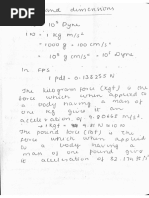 and dimensions
10⁵ Dyne
1 N = 1 Kg m/s²
= 1000 g × 100 cm/s²
= 10⁵ Dyne
In FPS
1 pdl = 0.138255 N
The kilogram force (kgf) is the
force which when applied
to a body having a man of
one kg gives an
acceleration of 9.80665 m/s².
The pound force (lbf) is the
force which when applied
to a body having a
man one pound give
it acceleration of